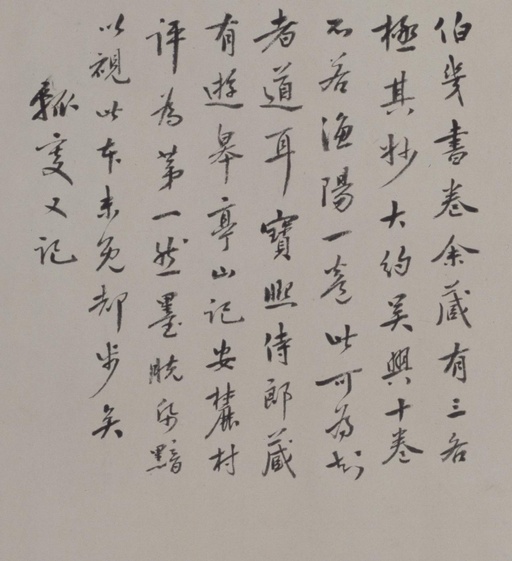 伯幾書卷余藏有三各
極其妙大約吳興十卷
不若漁陽一卷此可為知
者道耳寶熙侍郎藏
有遊皋亭山記安麓村
評為第一然墨脱帋黯
以視此本未免却步矣
叟又記